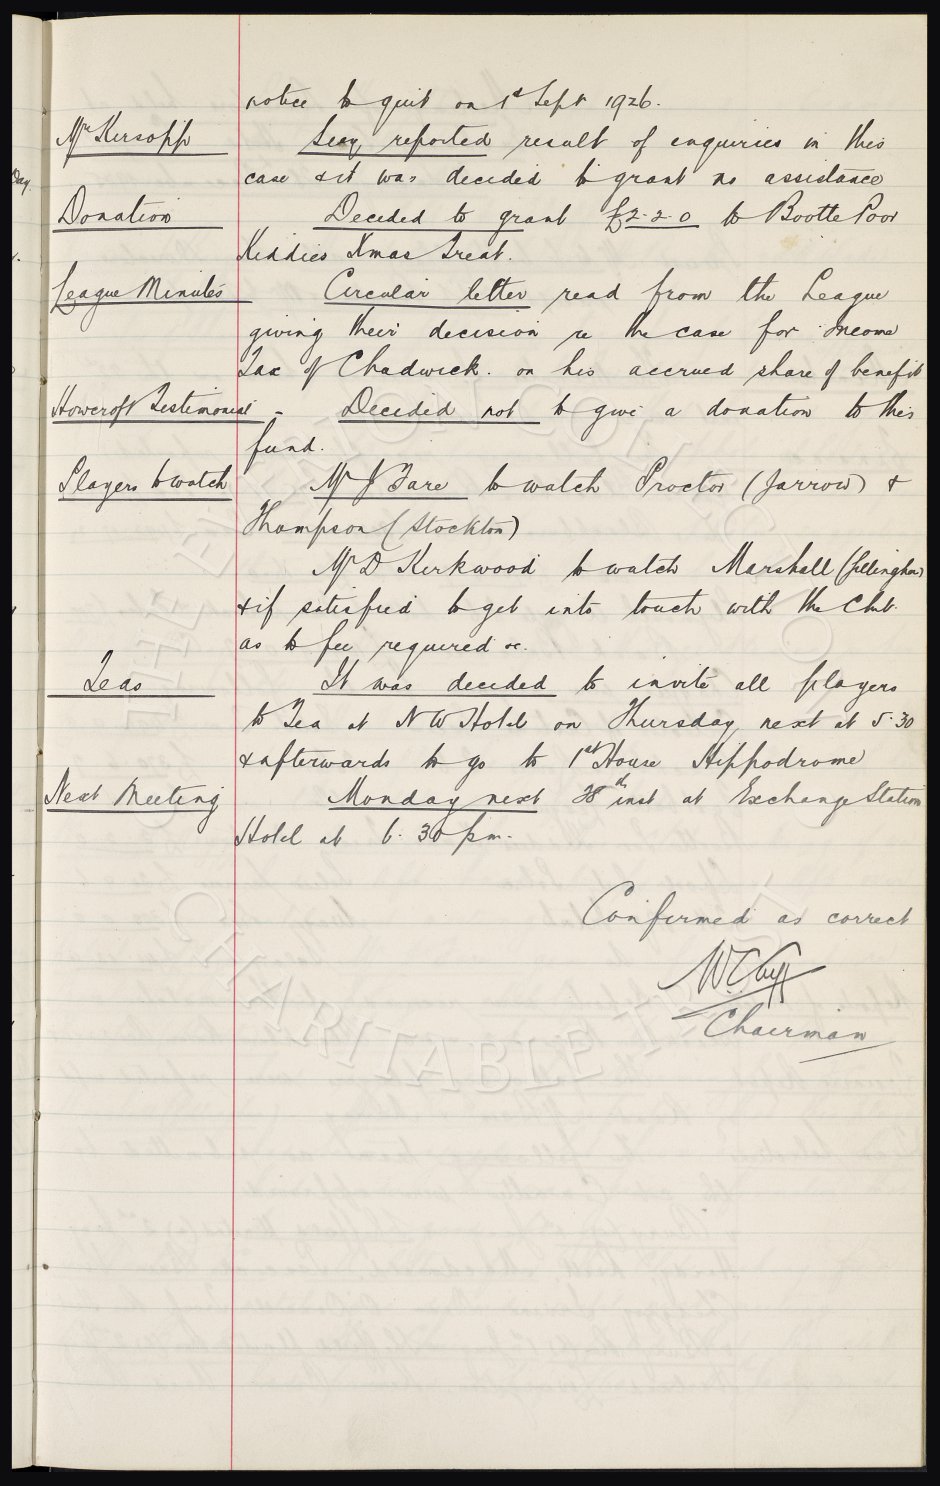 notice to quit on 1st Sept 1926.
Mr Kirsopp Secy reported result of enquiries in this
case & it was decided to grant no assistance
Donation Decided to grant £2-2-0 to Bootle Poor
Kiddies Xmas Treat.
League Minutes Circular letter read from the League
giving their decision re the case for Income
Tax of Chadwick. on his accrued share of benefit
Howcroft Testimonial - Decided not to give a donation to this
fund.
Players to watch Mr J Fare to watch Proctor (Jarrow) &
Thompson (Stockton)
Mr D Kirkwood to watch Marshall (Gillingham)
& if satisfied to get into touch with the Club
as to fee required &c.
Teas It was decided to invite all players
to Tea at N W Hotel on Thursday next at 5.30
& afterwards to go to 1st House Hippodrome
Next Meeting Monday next 28th inst at Exchange Station
Hotel at 6.30 pm.
Confirmed as correct
W.C. Cuff
Chairman
THE EVERTON COLLECTION
CHARITABLE TRUST